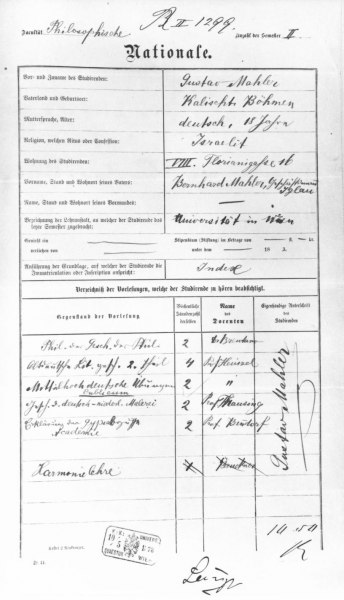 R II 1299.
Facultät: Philosophische Anzahl der Semester II.
Nationale.
Vor- und Zuname des Studirenden: Gustav Mahler
Vaterland und Geburtsort: Kalischt Böhmen
Muttersprache, Alter: deutsch, 18 Jahre
Religion, welchen Ritus oder Confession: Israelit
Wohnung des Studirenden: VIII. Florianigasse 16
Vorname, Stand und Wohnort seines Vaters: Bernhard Mahler, Iglau
Name, Stand und Wohnort seines Vormundes:
Bezeichnung der Lehranstalt, an welcher der Studirende das letzte Semester zugebracht: Universität in Wien
Genießt ein Stipendium (Stiftung) im Betrage von fl. kr.
verliehen von unter dem 18 Z.
Anführung der Grundlage, auf welcher der Studirende die Immatriculation oder Inscription anspricht: Index
Verzeichnis der Vorlesungen, welche der Studirende zu hören beabsichtigt.
Gegenstand der Vorlesung Wöchentliche Stundenzahl derselben Name des Docenten Eigenhändige Unterschrift des Studirenden
Phil. der Gesch. der Phil. 2 Dr Brentano
Altdeutsche Lit. 2. Theil 4 Prof Heinzel
Mittelhochdeutsche Übungen 2 "
Publicum
Gesch. d. deutsch-niederl. Malerei 2 Prof Thausing
Erklärung der Gypsabgüsse 2 Prof. Bendorf
Academie
Harmonielehre 4 Bruckner
Gustav Mahler